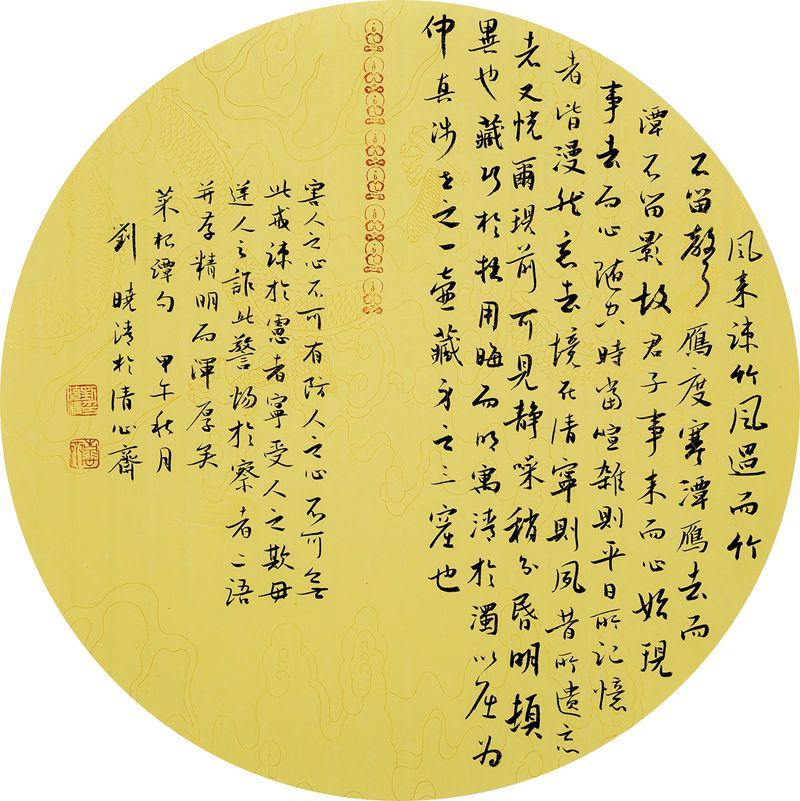 風来疎竹風過而竹
不留聲鴈度寒潭鴈去而
潭不留影故君子事来而心始現
事去而心随空時當喧雜則平日所记憶
者皆漫然忘去境在清寧則夙昔所遺忘
者又恍爾現前可見静噪稍分昏明頓
異也藏巧於拙用晦而明寓清於濁以屈为
伸真涉世之一壺藏身之三窟也
害人之心不可有防人之心不可無
此戒疎於慮者寧受人之欺毋
逆人之詐此警惕於察者二語
并存精明而渾厚矣
菜根譚句 甲午秋月
劉曉清於清心齋